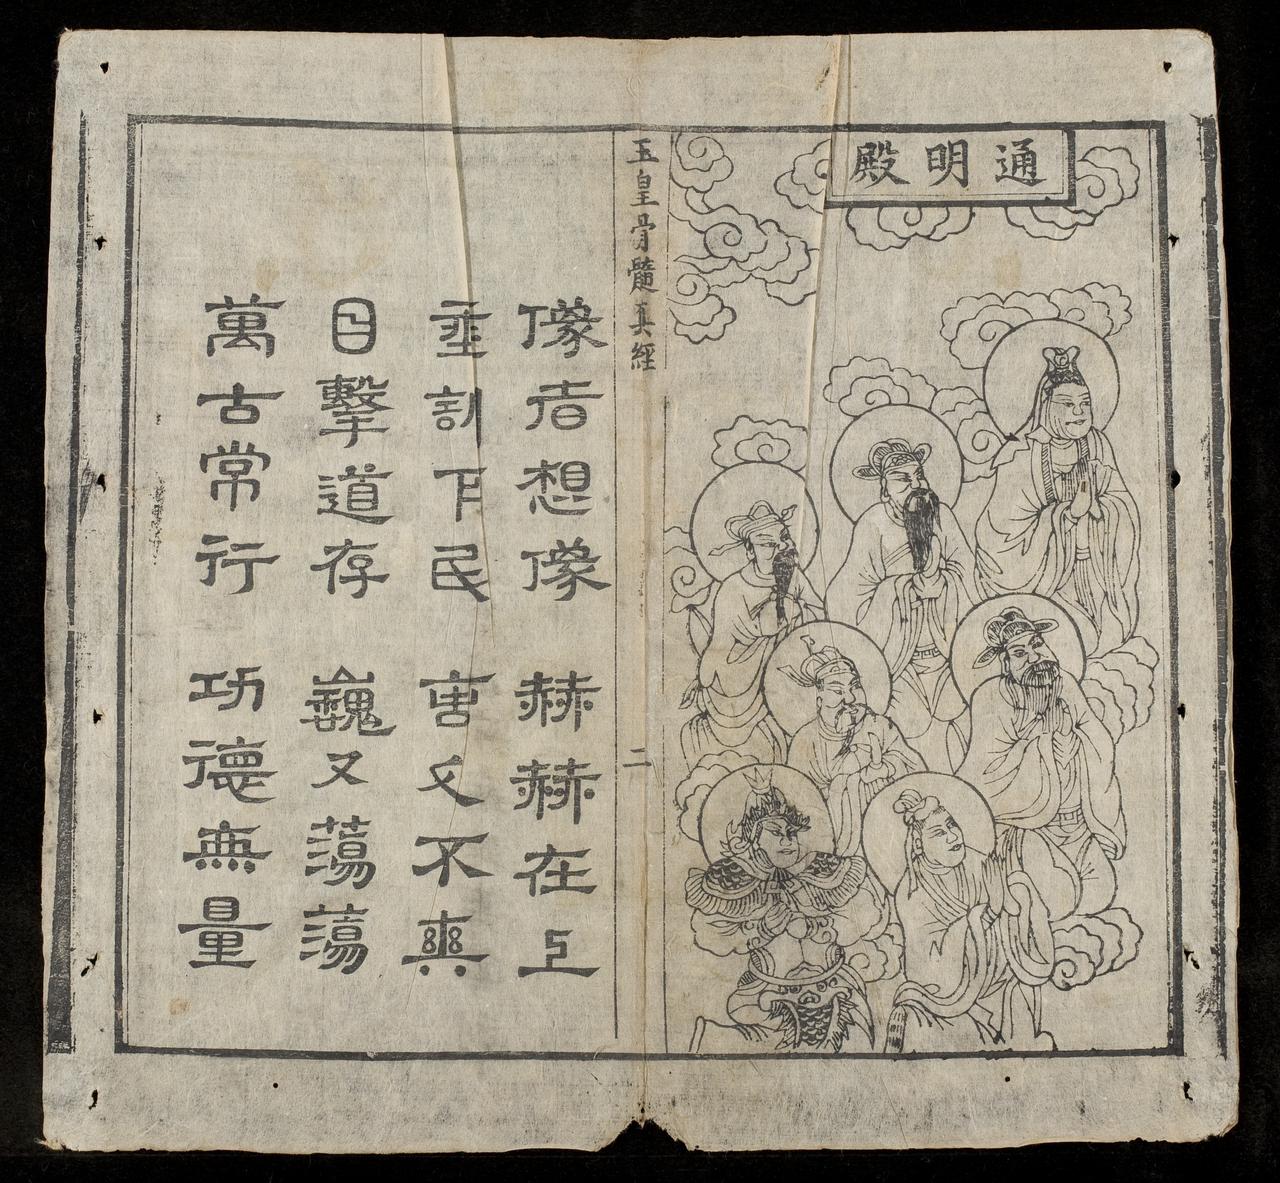 通明殿
玉皇骨髓真經
二
像者想像 赫赫在上
垂訓下民 言々不爽
目擊道存 巍々蕩蕩
萬古常行 功德無量